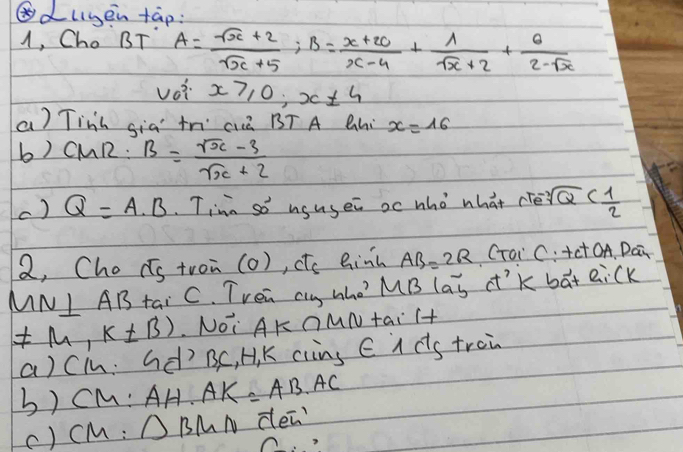 ⊛ Luyện tập:
1, Cho BT A = (√x + 2)/(√x + 5) ; B = (x + 20)/(x - 4) + 1/(√x + 2) + 6/(2 - √x)
với x ≥ 0 ; x ≠ 4
a) Tính giá trị của BT A khi x = 16
b) CMR: B = (√x - 3)/(√x + 2)
c) Q = A.B. Tìm số nguyên x nhỏ nhất để √Q < 1/2
2, Cho đg tròn (O), đg kính AB = 2R. Gọi C: tđ OA, Dây
MN ⊥ AB tại C. Trên cung nhỏ MB lấy đ' K bất kì (K
≠ M, K ≠ B). Nối AK ∩ MN tại H
a) CM: 4 đ' B,C,H,K cùng ∈ 1 đg tròn
b) CM: AH. AK = AB. AC
c) CM: △ BMN đều